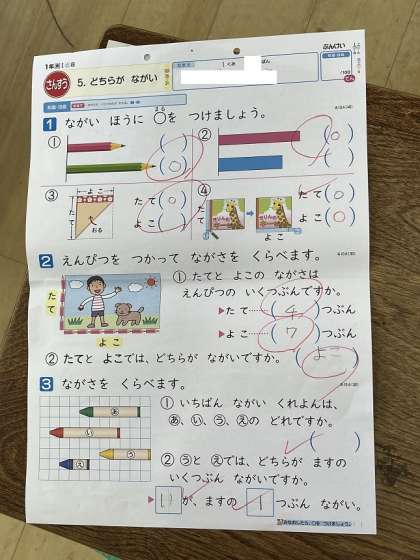 1年算
ぶんけい
さんすう
5. どちらが ながい
1 くみ
ばん
/100
てん
1 ながい ほうに ○を つけましょう。
まる
① ( )
( ○ )
② ( ○ )
( )
③ よこ
たて
おる
たて ( ○ )
よこ ( )
④ たて
よこ
たて ( ○ )
よこ ( ○ )
2 えんぴつを つかって ながさを くらべます。
① たてと よこの ながさは
えんぴつの いくつぶんですか。
▶たて……( 4 )つぶん
▶よこ……( 7 )つぶん
たて
よこ
② たてと よこでは、どちらが ながいですか。 ( よこ )
3 ながさを くらべます。
① いちばん ながい くれよんは、
あ、い、う、えの どれですか。
( )
あ
い
う
え
② うと えでは、どちらが ますの
いくつぶん ながいですか。
▶ う が、ますの 1 つぶん ながい。